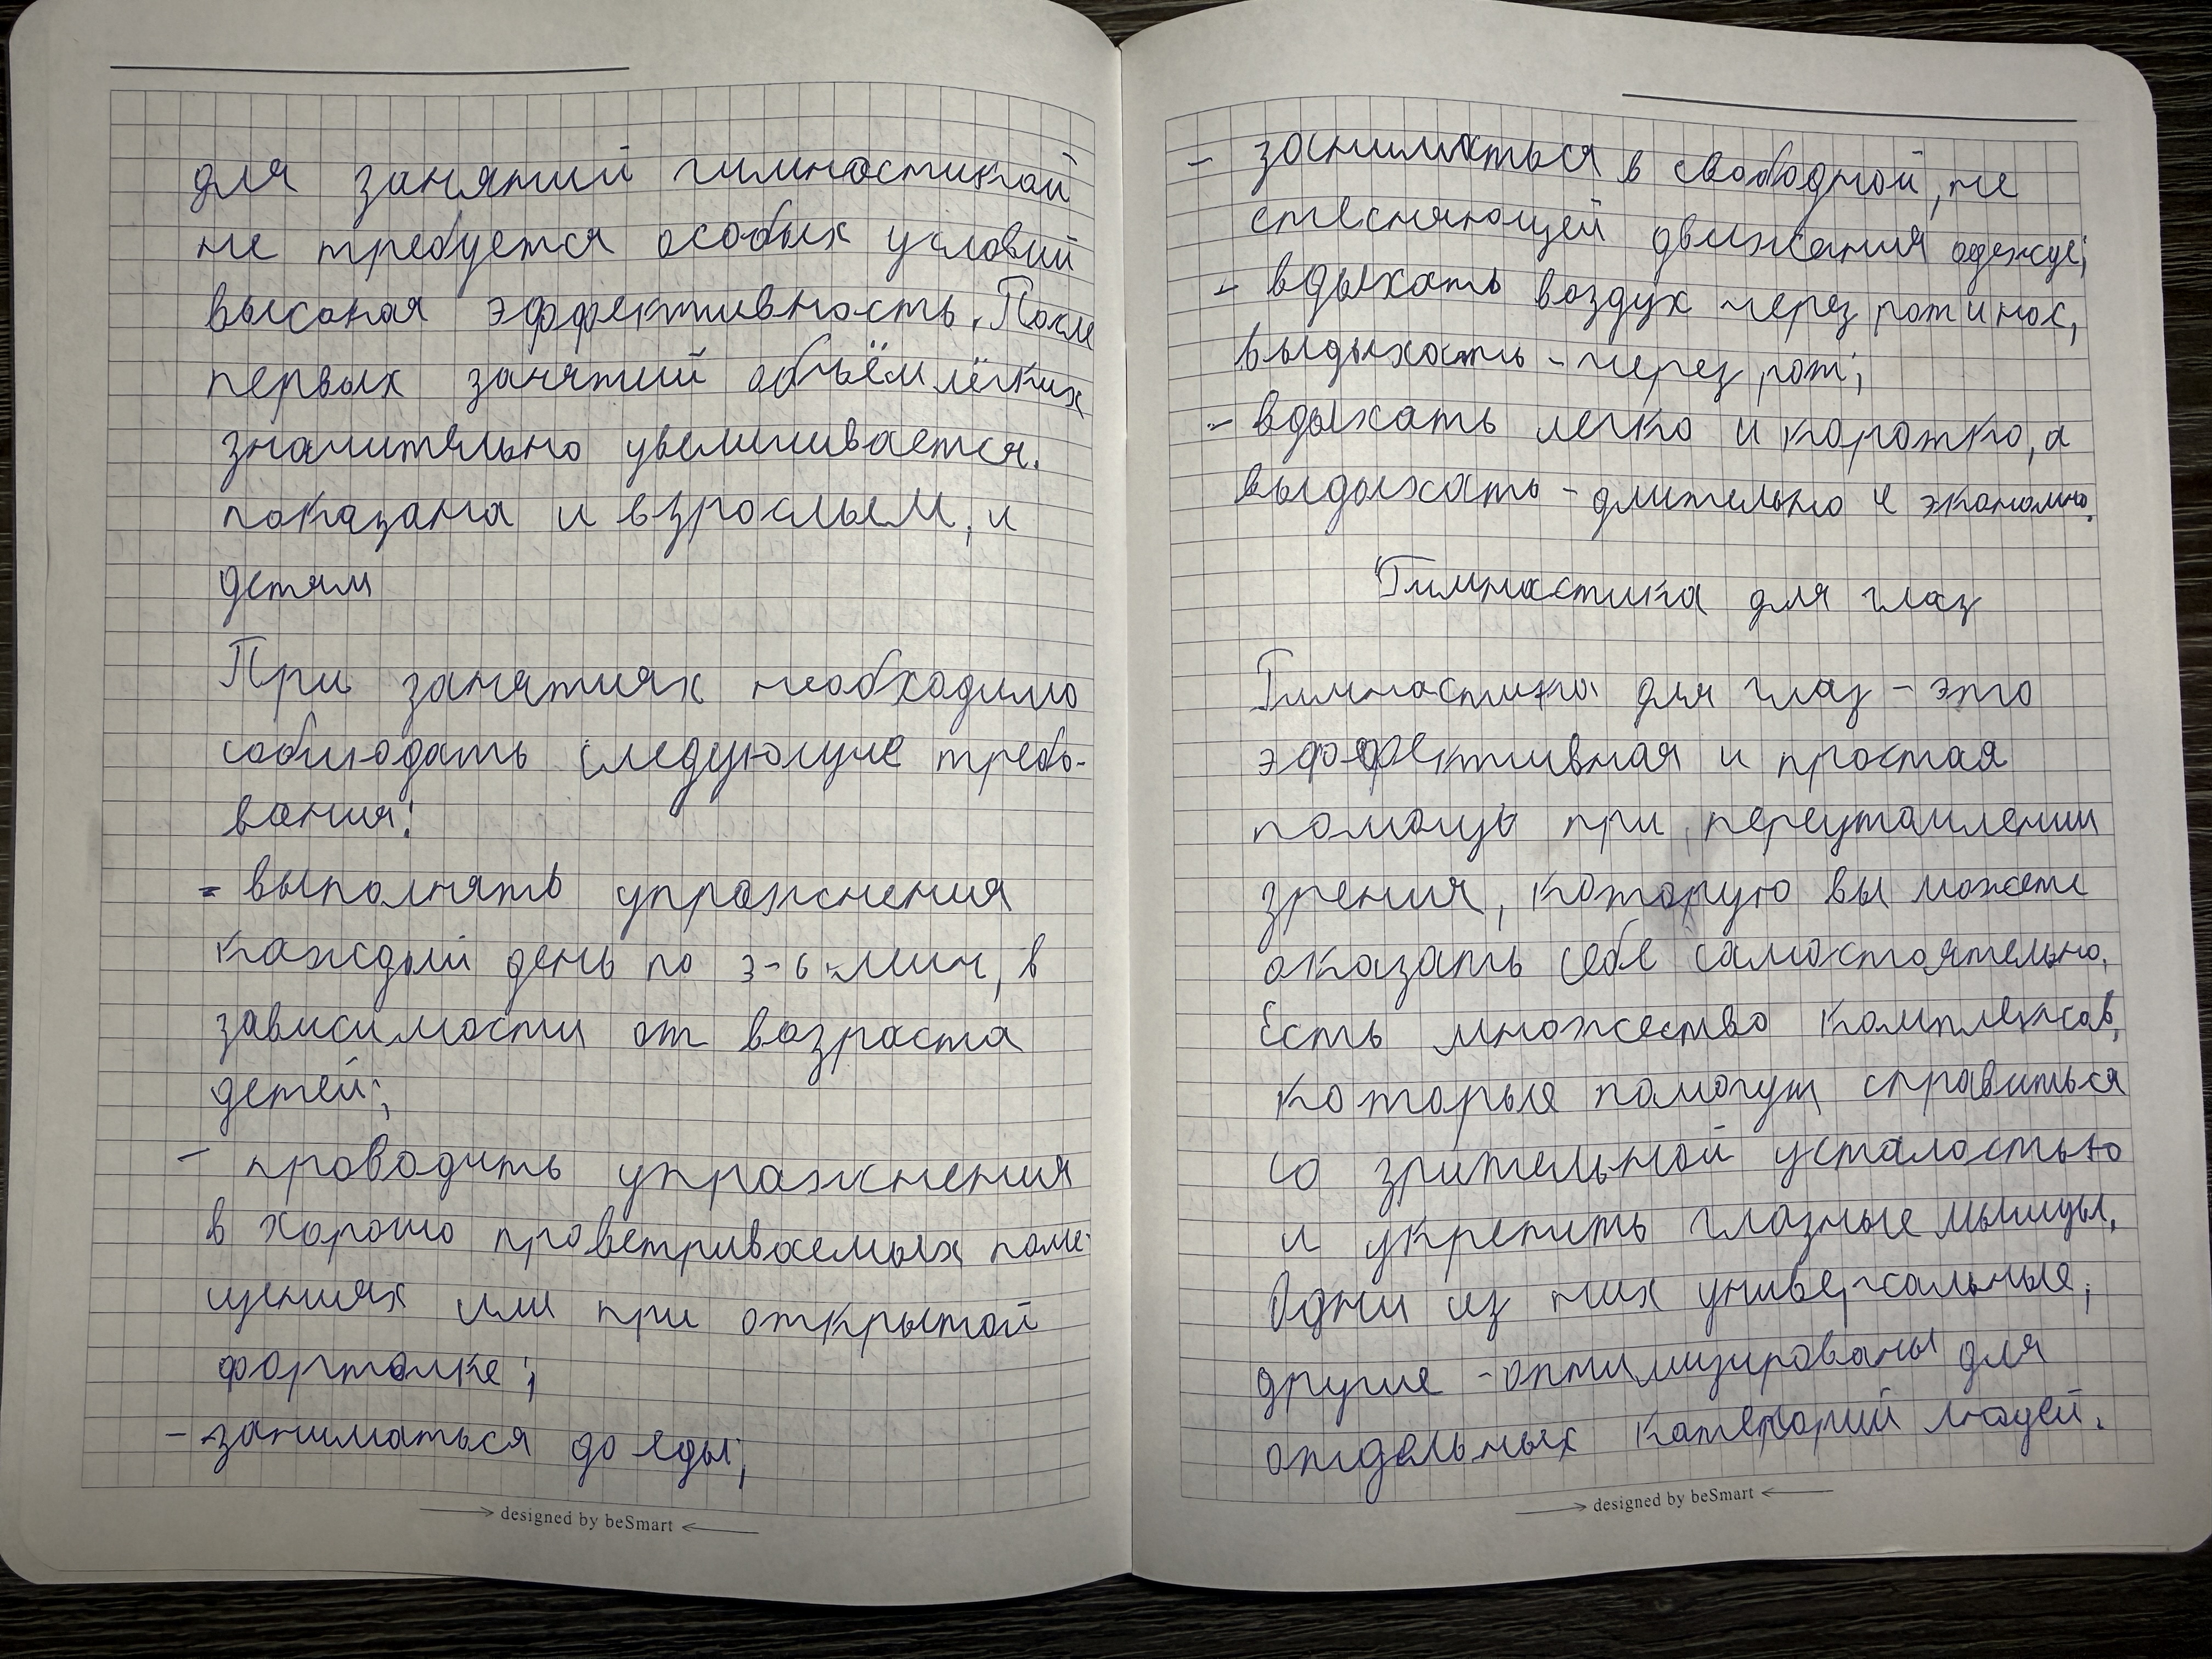 для занятий гимнастикой
не требуется особых условий
высокая эффективность. После
первых занятий объём лёгких
значительно увеличивается.
показана и взрослым, и
детям
При занятиях необходимо
соблюдать следующие требо-
вания:
- выполнять упражнения
каждый день по 3-6 мин, в
зависимости от возраста
детей;
- проводить упражнения
в хорошо проветриваемых поме-
щениях или при открытой
форточке;
- заниматься до еды;
designed by beSmart
- заниматься в свободной, не
стесняющей движения одежде;
- вдыхать воздух через рот и нос,
выдыхать - через рот;
- вдыхать легко и коротко, а
выдыхать - длительно и экономно.
Гимнастика для глаз
Гимнастика для глаз - это
эффективная и простая
помощь при переутомлении
зрения, которую вы можете
оказать себе самостоятельно.
Есть множество комплексов,
которые помогут справиться
со зрительной усталостью
и укрепить глазные мышцы.
Одни из них универсальные,
другие - оптимизированы для
отдельных категорий людей.
designed by beSmart